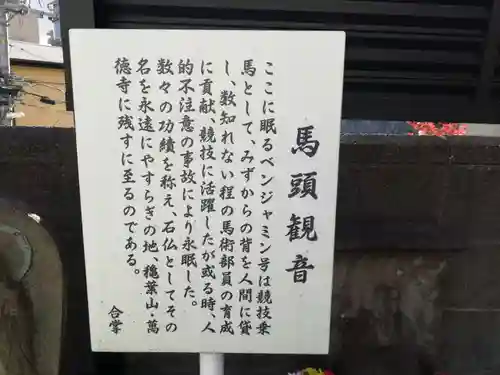 馬頭観音
ここに眠るベンジャミン号は競技乗
馬として、みずからの背を人間に貸
し、数知れない程の馬術部員の育成
に貢献、競技に活躍したが或る時、人
的不注意の事故により永眠した。
数々の功績を称え、石仏としてその
名を永遠にやすらぎの地、穐葉山・萬
徳寺に残すに至るのである。
合掌